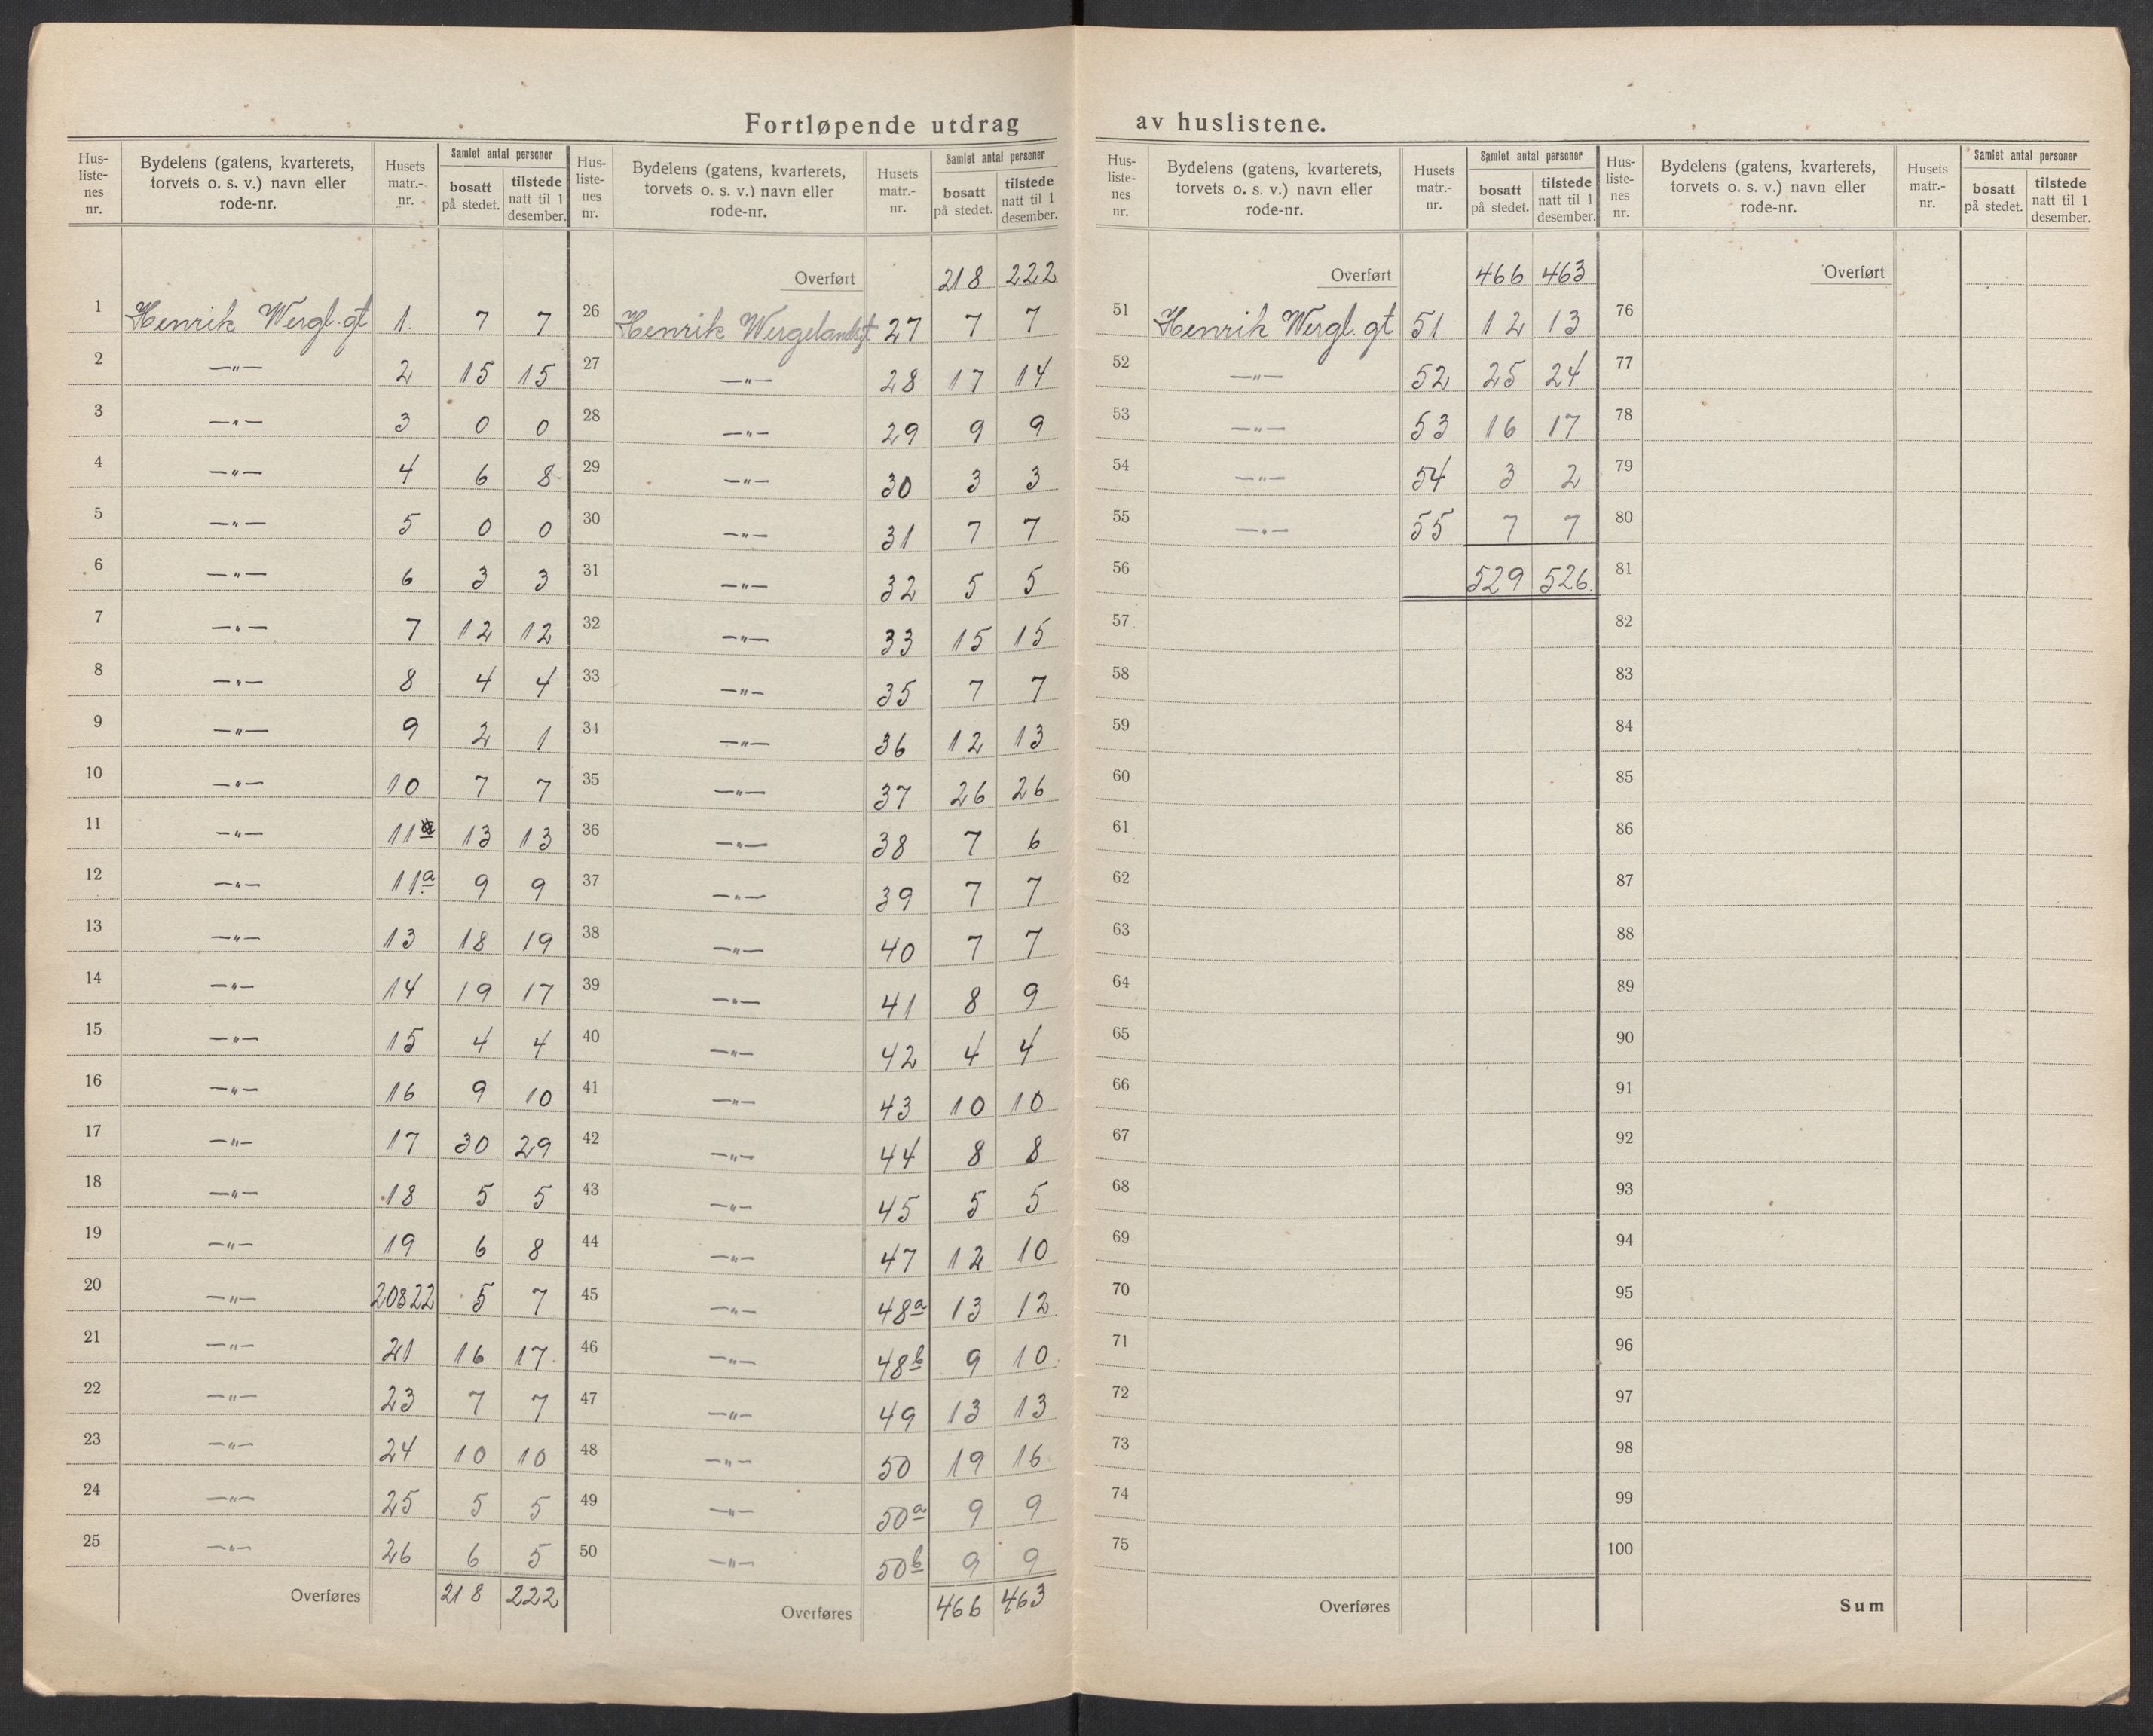 Fortløpende utdrag av huslistene.
Hus-listenes nr. | Bydelens (gatens, kvarterets, torvets o. s. v.) navn eller rode-nr. | Husets matr.-nr. | Samlet antal personer bosatt på stedet. | tilstede natt til 1 desember.
1 Henrik Wergl. gt 1. 7 7
2 —"— 2 15 15
3 —"— 3 0 0
4 —"— 4 6 8
5 —"— 5 0 0
6 —"— 6 3 3
7 —"— 7 12 12
8 —"— 8 4 4
9 —"— 9 2 1
10 —"— 10 7 7
11 —"— 11 13 13
12 —"— 11a 9 9
13 —"— 13 18 19
14 —"— 14 19 17
15 —"— 15 4 4
16 —"— 16 9 10
17 —"— 17 30 29
18 —"— 18 5 5
19 —"— 19 6 8
20 —"— 20&22 5 7
21 —"— 21 16 17
22 —"— 23 7 7
23 —"— 24 10 10
24 —"— 25 5 5
25 —"— 26 6 5
Overføres 218 222
Hus-listenes nr. | Bydelens (gatens, kvarterets, torvets o. s. v.) navn eller rode-nr. | Husets matr.-nr. | Samlet antal personer bosatt på stedet. | tilstede natt til 1 desember.
Overført 218 222
26 Henrik Wergelandsgt 27 7 7
27 —"— 28 17 14
28 —"— 29 9 9
29 —"— 30 3 3
30 —"— 31 7 7
31 —"— 32 5 5
32 —"— 33 15 15
33 —"— 35 7 7
34 —"— 36 12 13
35 —"— 37 26 26
36 —"— 38 7 6
37 —"— 39 7 7
38 —"— 40 7 7
39 —"— 41 8 9
40 —"— 42 4 4
41 —"— 43 10 10
42 —"— 44 8 8
43 —"— 45 5 5
44 —"— 47 12 10
45 —"— 48a 13 12
46 —"— 48b 9 10
47 —"— 49 13 13
48 —"— 50 19 16
49 —"— 50a 9 9
50 —"— 50b 9 9
Overføres 466 463
Hus-listenes nr. | Bydelens (gatens, kvarterets, torvets o. s. v.) navn eller rode-nr. | Husets matr.-nr. | Samlet antal personer bosatt på stedet. | tilstede natt til 1 desember.
Overført 466 463
51 Henrik Wergl. gt 51 12 13
52 —"— 52 25 24
53 —"— 53 16 17
54 —"— 54 3 2
55 —"— 55 7 7
56 529 526.
57
58
59
60
61
62
63
64
65
66
67
68
69
70
71
72
73
74
75
Overføres
Hus-listenes nr. | Bydelens (gatens, kvarterets, torvets o. s. v.) navn eller rode-nr. | Husets matr.-nr. | Samlet antal personer bosatt på stedet. | tilstede natt til 1 desember.
Overført
76
77
78
79
80
81
82
83
84
85
86
87
88
89
90
91
92
93
94
95
96
97
98
99
100
Sum